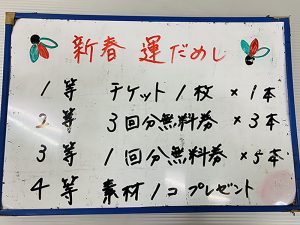 新春 運だめし
1等 チケット1枚 × 1本
2等 3回分無料券 × 3本
3等 1回分無料券 × 5本
4等 素材1コプレゼント